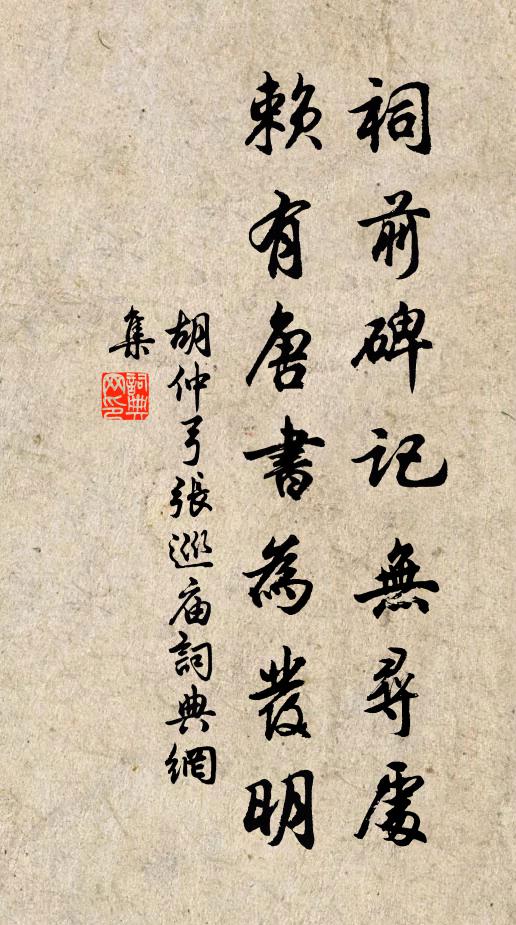 祠前碑記無尋處
賴有唐書為發明
胡仲弓張巡廟詞典網
集
詞典
网印